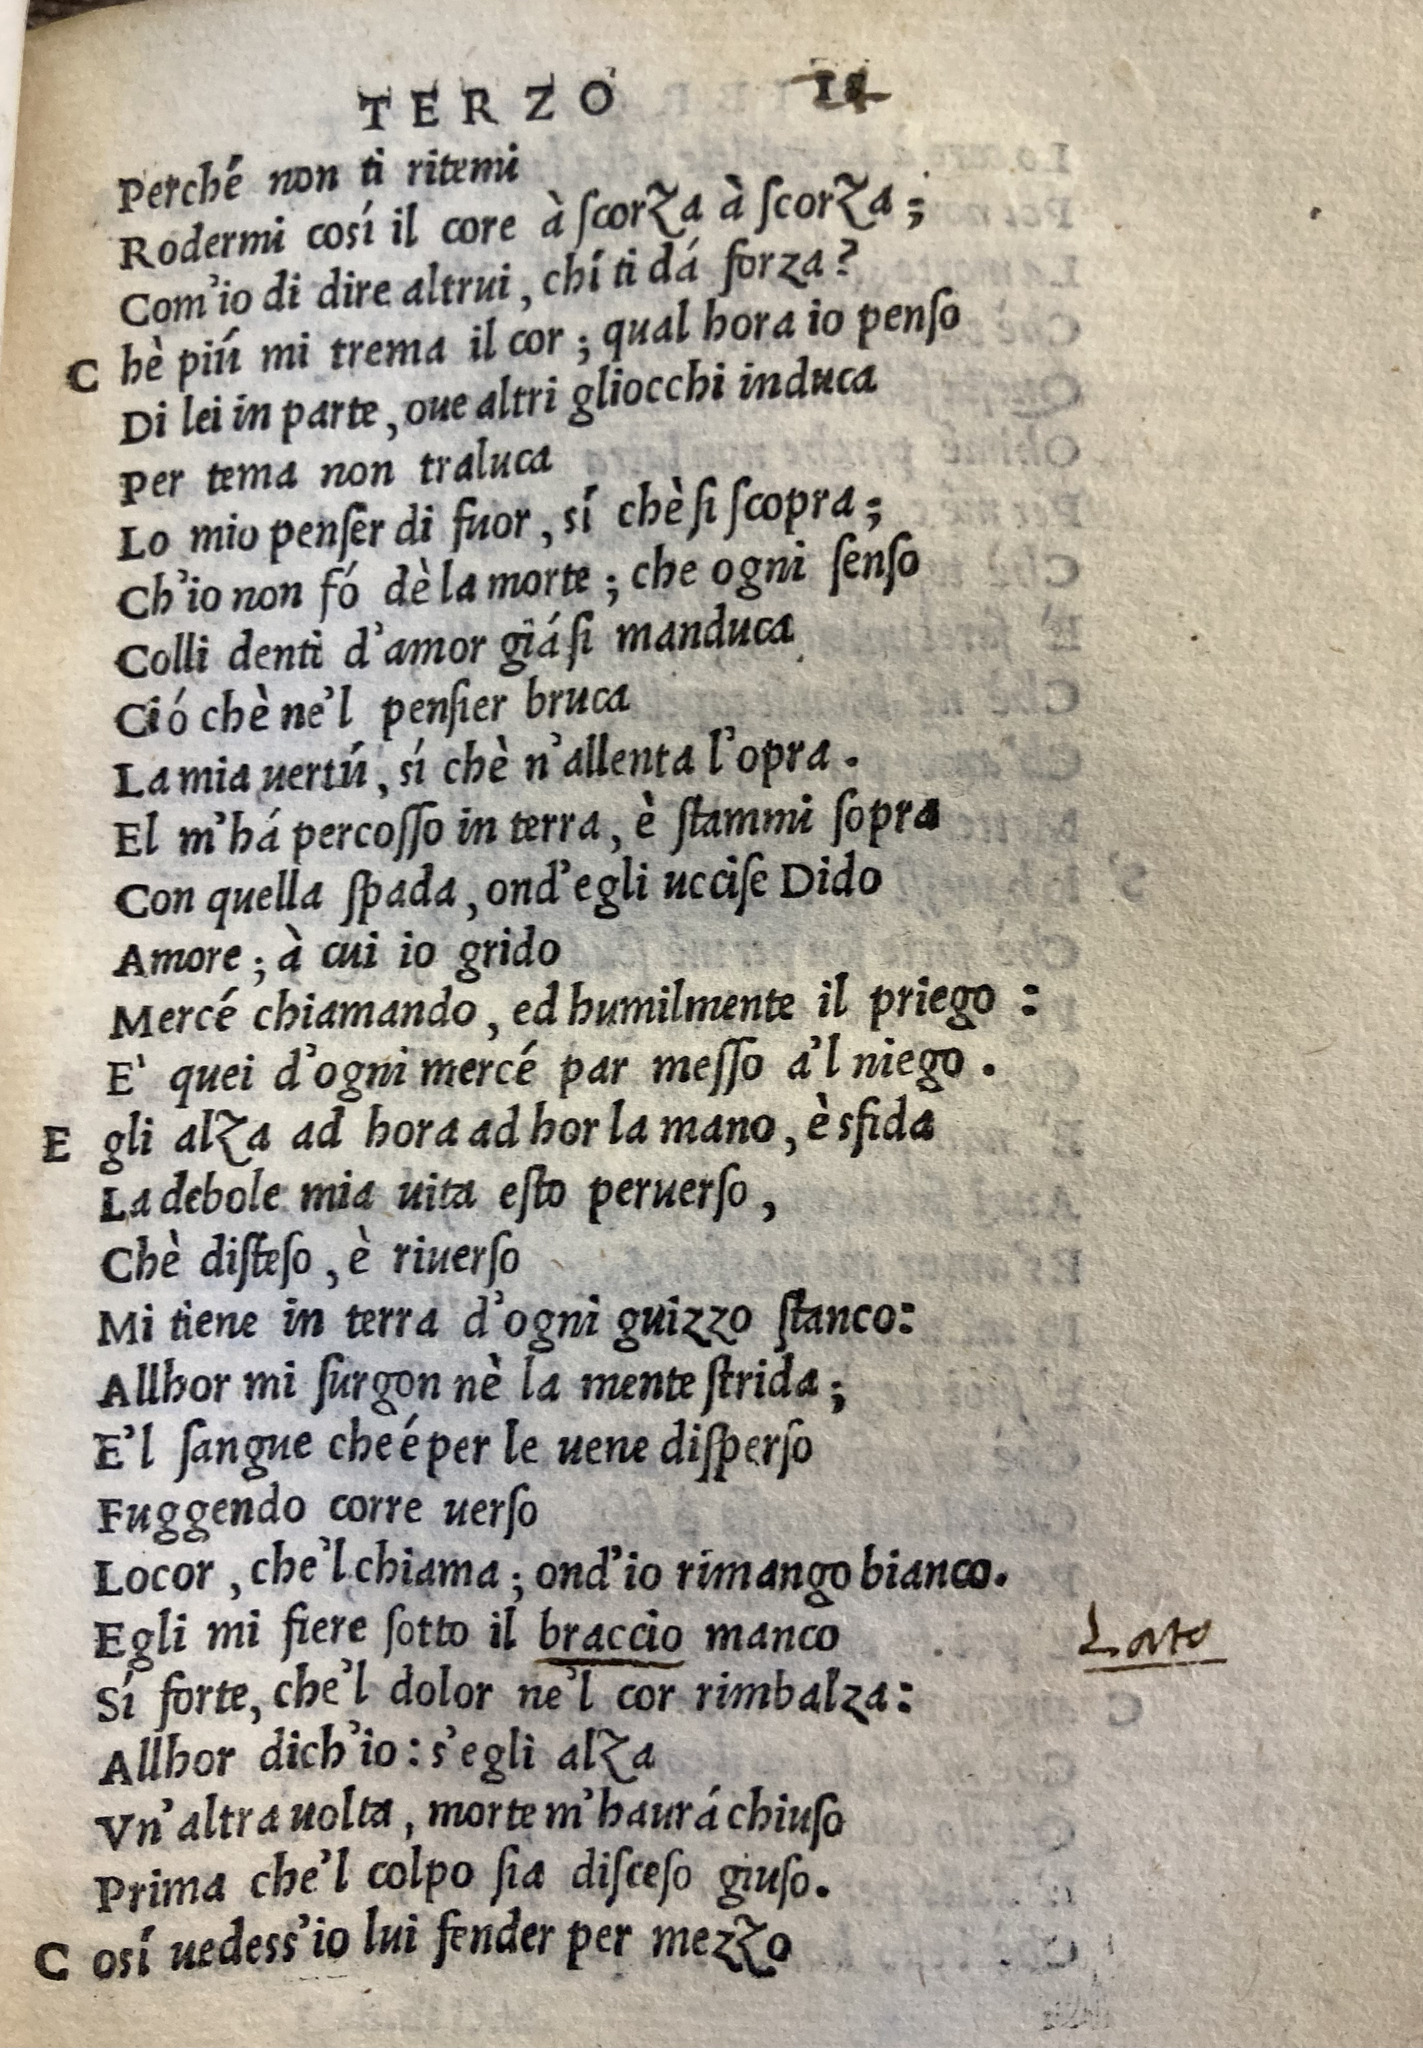 TERZO
Perché non ti ritemi
Rodermi cosí il core à ſcorza à ſcorza;
Com'io di dire altrui, chí ti dá forza?
C hè piú mi trema il cor; qual hora io penſo
Di lei in parte, oue altri gliocchi induca
Per tema non traluca
Lo mio penſer di fuor, sí chè ſi ſcopra;
Ch'io non fó dè la morte; che ogni ſenſo
Colli denti d'amor giá ſi manduca
Ció chè ne'l penſier bruca
La mia uertú, sí chè n'allenta l'opra.
El m'há percoſſo in terra, è ſtammi ſopra
Con quella ſpada, ond'egli ucciſe Dido
Amore; à cui io grido
Mercé chiamando, ed humilmente il priego:
E' quei d'ogni mercé par meſſo á'l niego.
E gli alza ad hora ad hor la mano, è sfida
La debole mia uita eſto peruerſo,
Chè diſteſo, è riuerſo
Mi tiene in terra d'ogni guizzo ſtanco:
Allhor mi ſurgon nè la mente ſtrida;
E'l ſangue che é per le uene diſperſo
Fuggendo corre uerſo
Lo cor, che'l chiama; ond'io rimango bianco.
Egli mi fiere ſotto il braccio manco
Lato
Sí forte, che'l dolor ne'l cor rimbalza:
Allhor dich'io: s'egli alza
Vn'altra uolta, morte m'haurá chiuſo
Prima che'l colpo ſia diſceſo giuſo.
C osí uedess'io lui fender per mezzo